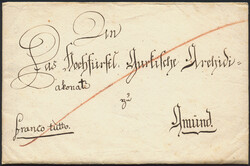 An
Das Hochfürstl. Gurkische Archidi-
akonate
zu
Gmünd.
Franco tutto.